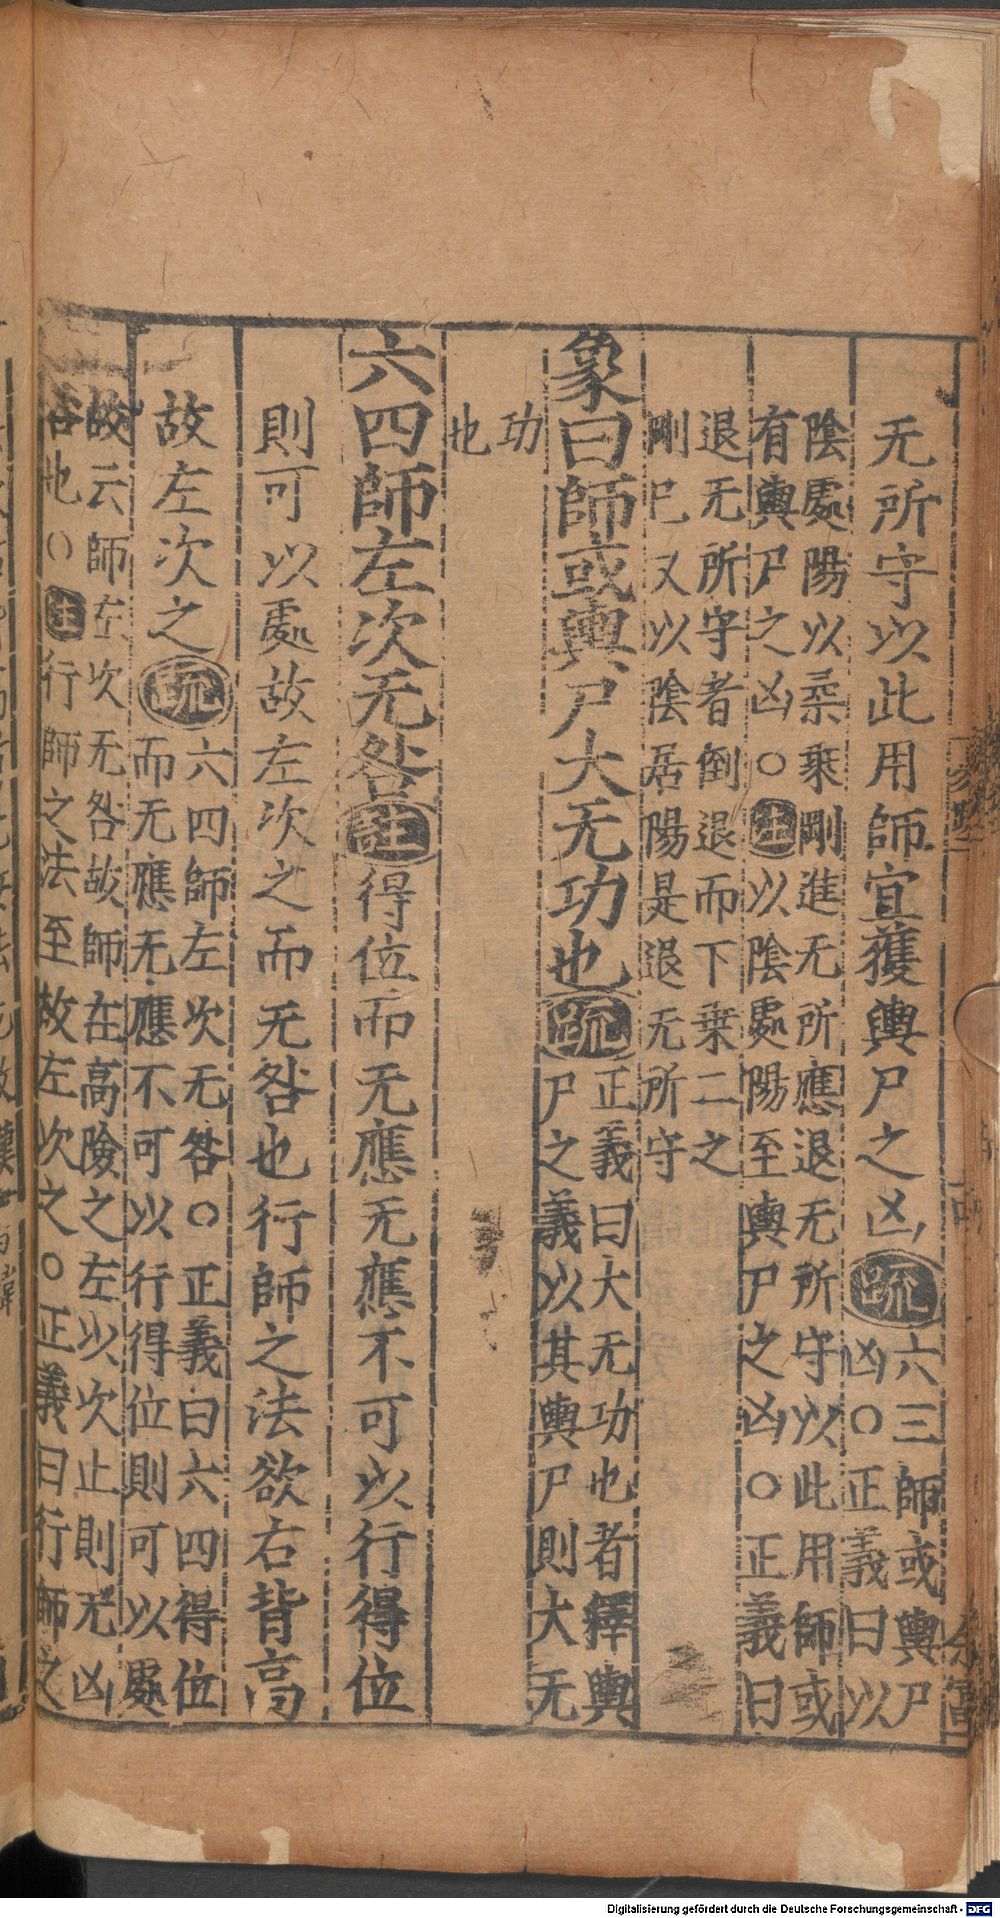 无所守以此用師宜獲輿尸之凶疏六三師或輿尸
凶○正義曰以
陰處陽以柔乗剛進无所應退无所守以此用師或
有輿尸之凶○注以陰處陽至輿尸之凶○正義曰
退无所守者倒退而下乗二之
剛巳又以陰居陽是退无所守
象曰師或輿尸大无功也疏正義曰大无功也者釋輿
尸之義以其輿尸則大无
功
也
六四師左次无咎注得位而无應无應不可以行得位
則可以處故左次之而无咎也行師之法欲右背高
故左次之疏六四師左次无咎○正義曰六四得位
而无應无應不可以行得位則可以處
故云師左次无咎故師在高險之左以次止則无凶
咎也○注行師之法至故左次之○正義曰行師之
Digitalisierung gefördert durch die Deutsche Forschungsgemeinschaft - DFG